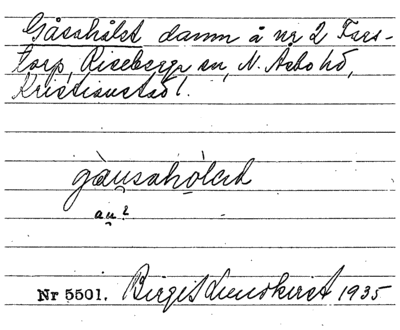 Gåsahålet damm å nr 2 Fars-
torp, Riseberga sn, N. Åsbo hd,
Kristianstad l.
gàusahòlet
au?
Nr 5501. Birgit 1935